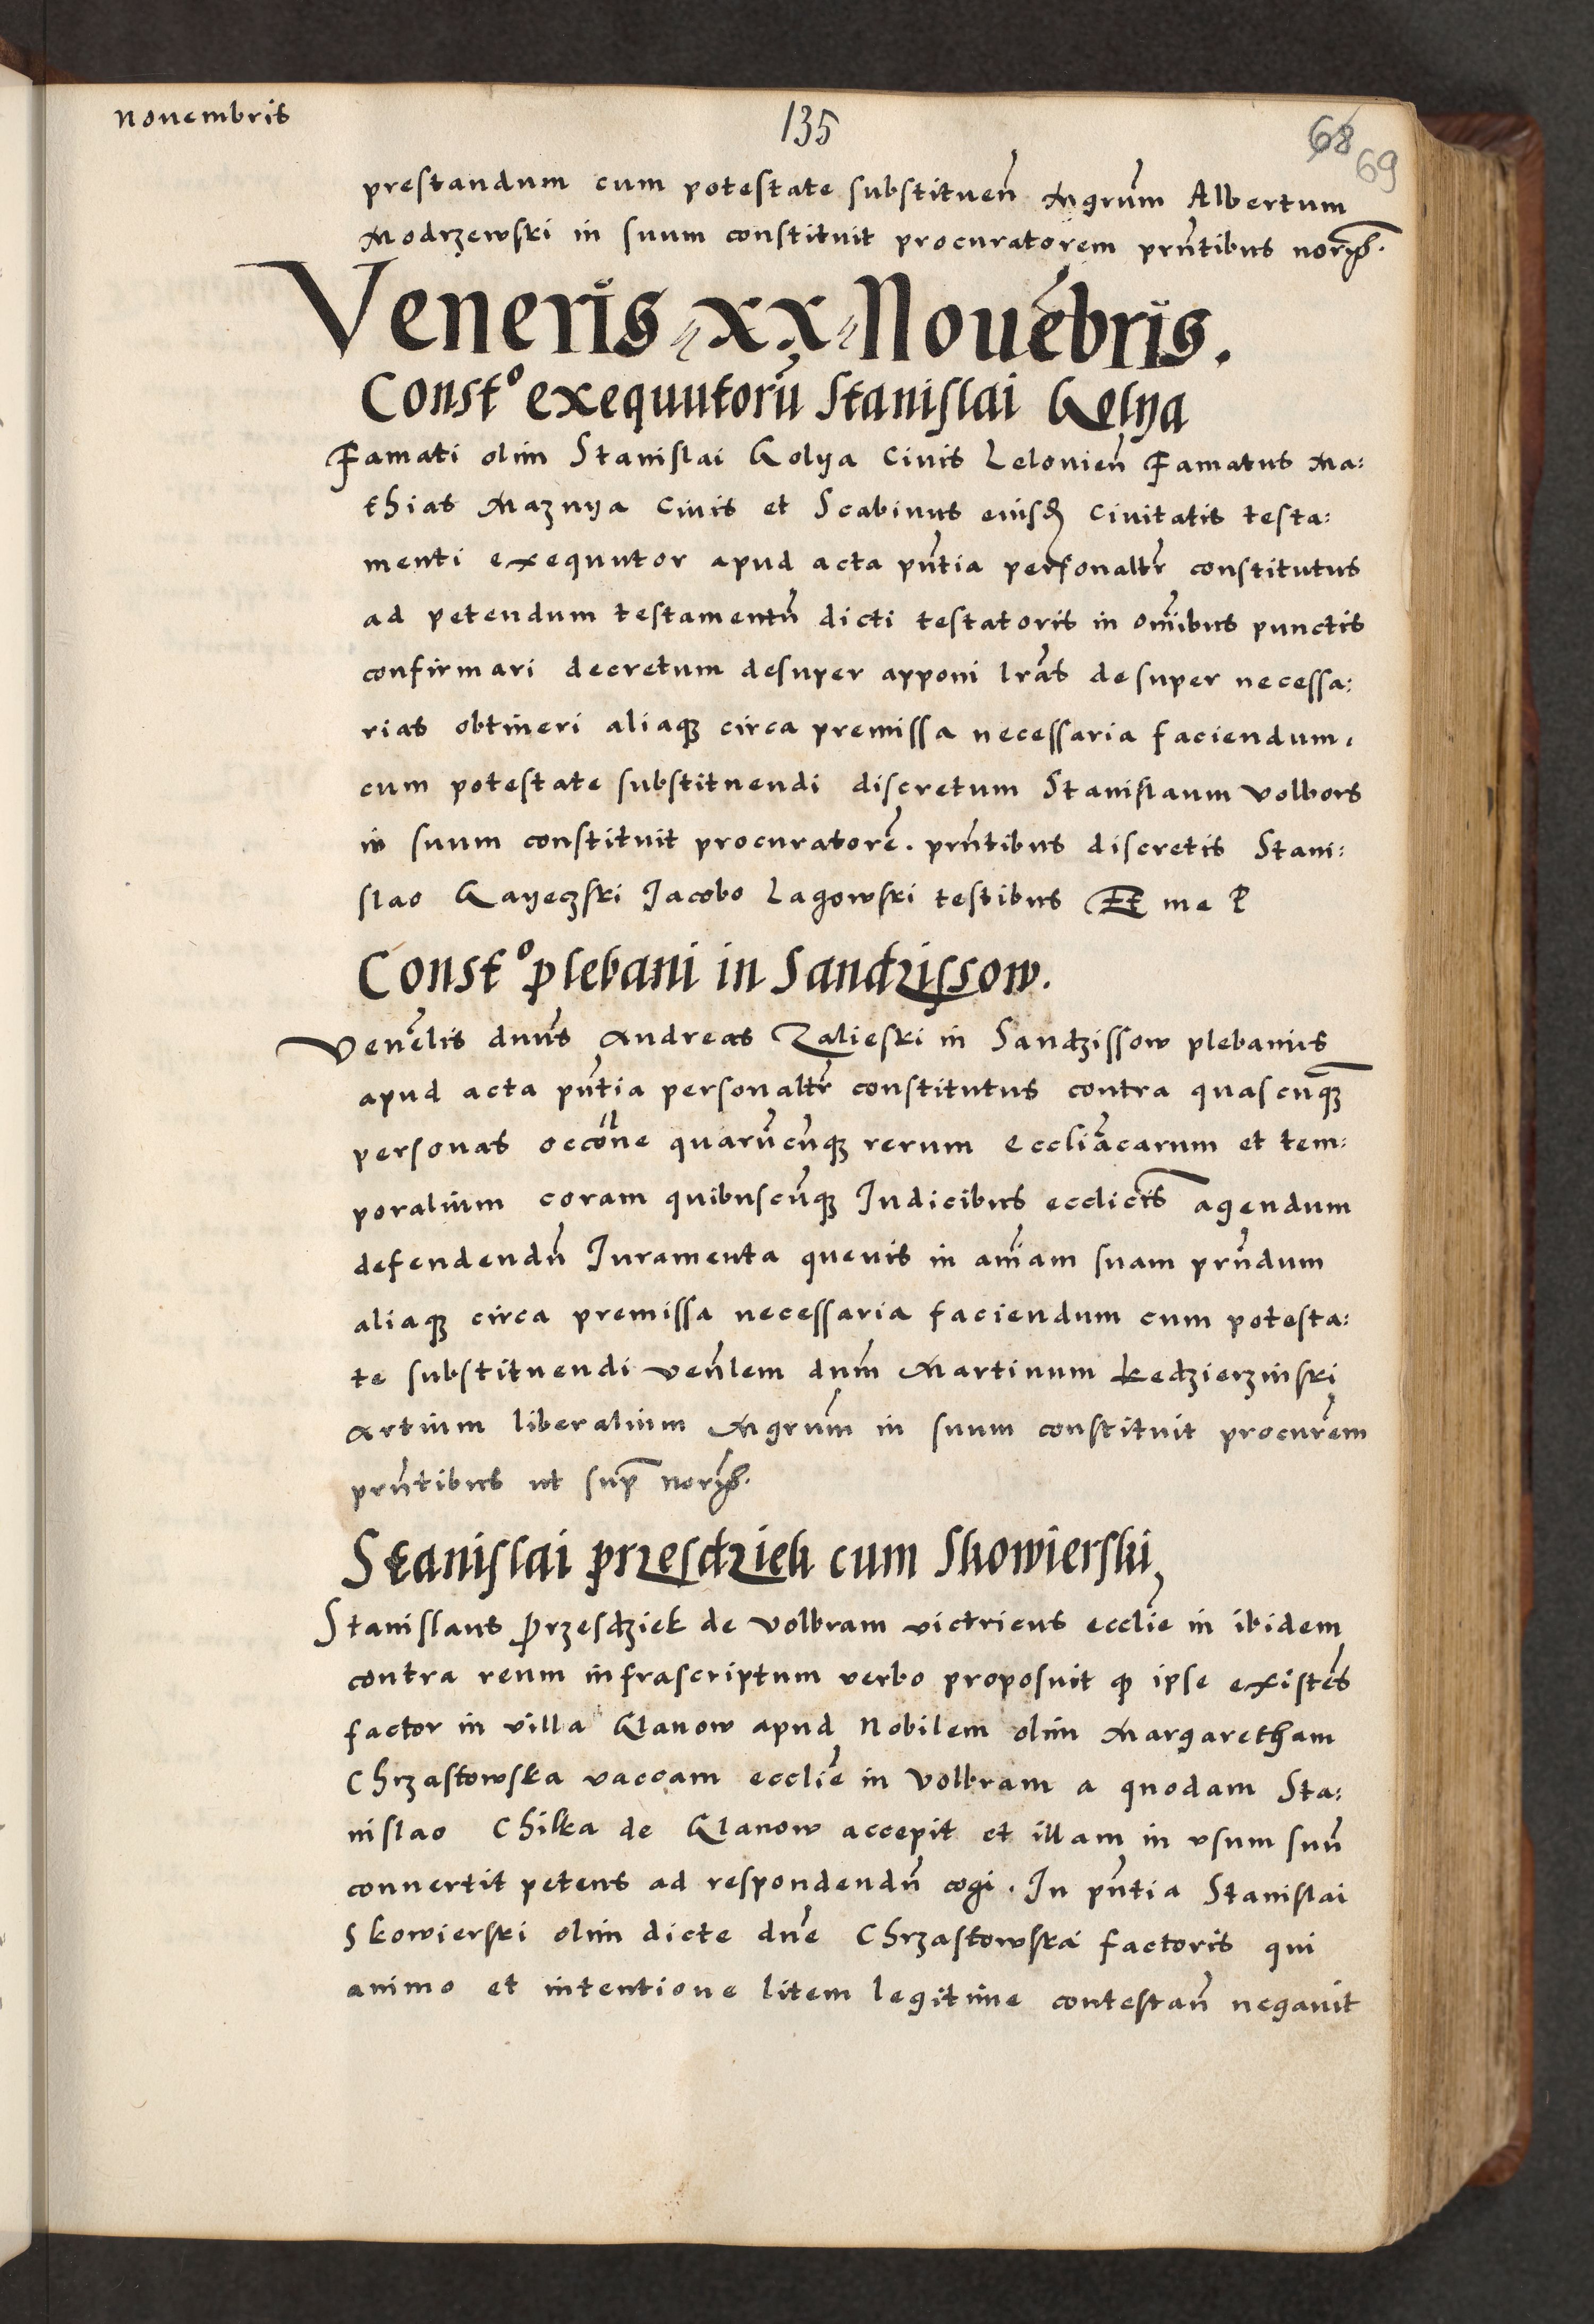 Nouembris
135
68
69
prestandum cum potestate substituen̄ Mgrum̄ Albertum
Modrzewski in suum constituit procuratorem prn̄tibus
Veneris xx Nouēbris.
Constº exequutorū Stanislai Kolya
Famati olim Stanislai Kolya Ciuis Lelouien̄ Famatus Ma:
thias Maznya Ciuis et Scabinus eiusd Ciuitatis testa:
menti exequutor apud acta pn̄tia personaltr̄ constitutus
ad petendum testamentū dicti testatoris in om̄ibus punctis
confirmari decretum desuper apponi lrās desuper necessa:
rias obtineri aliaqꝫ circa premissa necessaria faciendum.
cum potestate substituendi discretum Stanislaum Volbors
in suum constituit procuratorē. prn̄tibus discretis Stani:
slao Kayeczski Jacobo Lagowski testibus Et me P
Constº plebani in Sandzissow.
Venēlis dnūs Andreas Zalieski in Sandzissow plebanus
apud acta pn̄tia personaltr̄ constitutus contra quascūqꝫ
personas occōne quarūcūqꝫ rerum Eccliācarum et tem:
poralium coram quibuscūqꝫ Iudicibus ecclicis̄ agendum
defendendū Iuramenta queuis in am̄am suam prn̄dum
aliaqꝫ circa premissa necessaria faciendum cum potesta:
te substituendi ven̄lem dnm̄ Martinum Kedzierzinski
Artium liberalium Mgrum̄ in suum constituit procurēm
prn̄tibus ut sup̄
Stanislai przesdziek cum Skowierski
Stanislaus Przesdziek de Volbram victricus ecclie̅ in ibidem
contra reum infrascriptum verbo proposuit ꝙ ipse existēs
factor in villa Glanow apud Nobilem olim Margaretham
Chrzastowska vaccam ecclie̅ in Volbram a quodam Sta:
nislao Chilka de Glanow accepit et illam in vsum suū
conuertit petens ad respondendū cogi. In pn̄tia Stanislai
Skowierski olim dicte dn̄e Chrzastowska factoris qui
animo et intentione litem legitime contestan̄ negauit